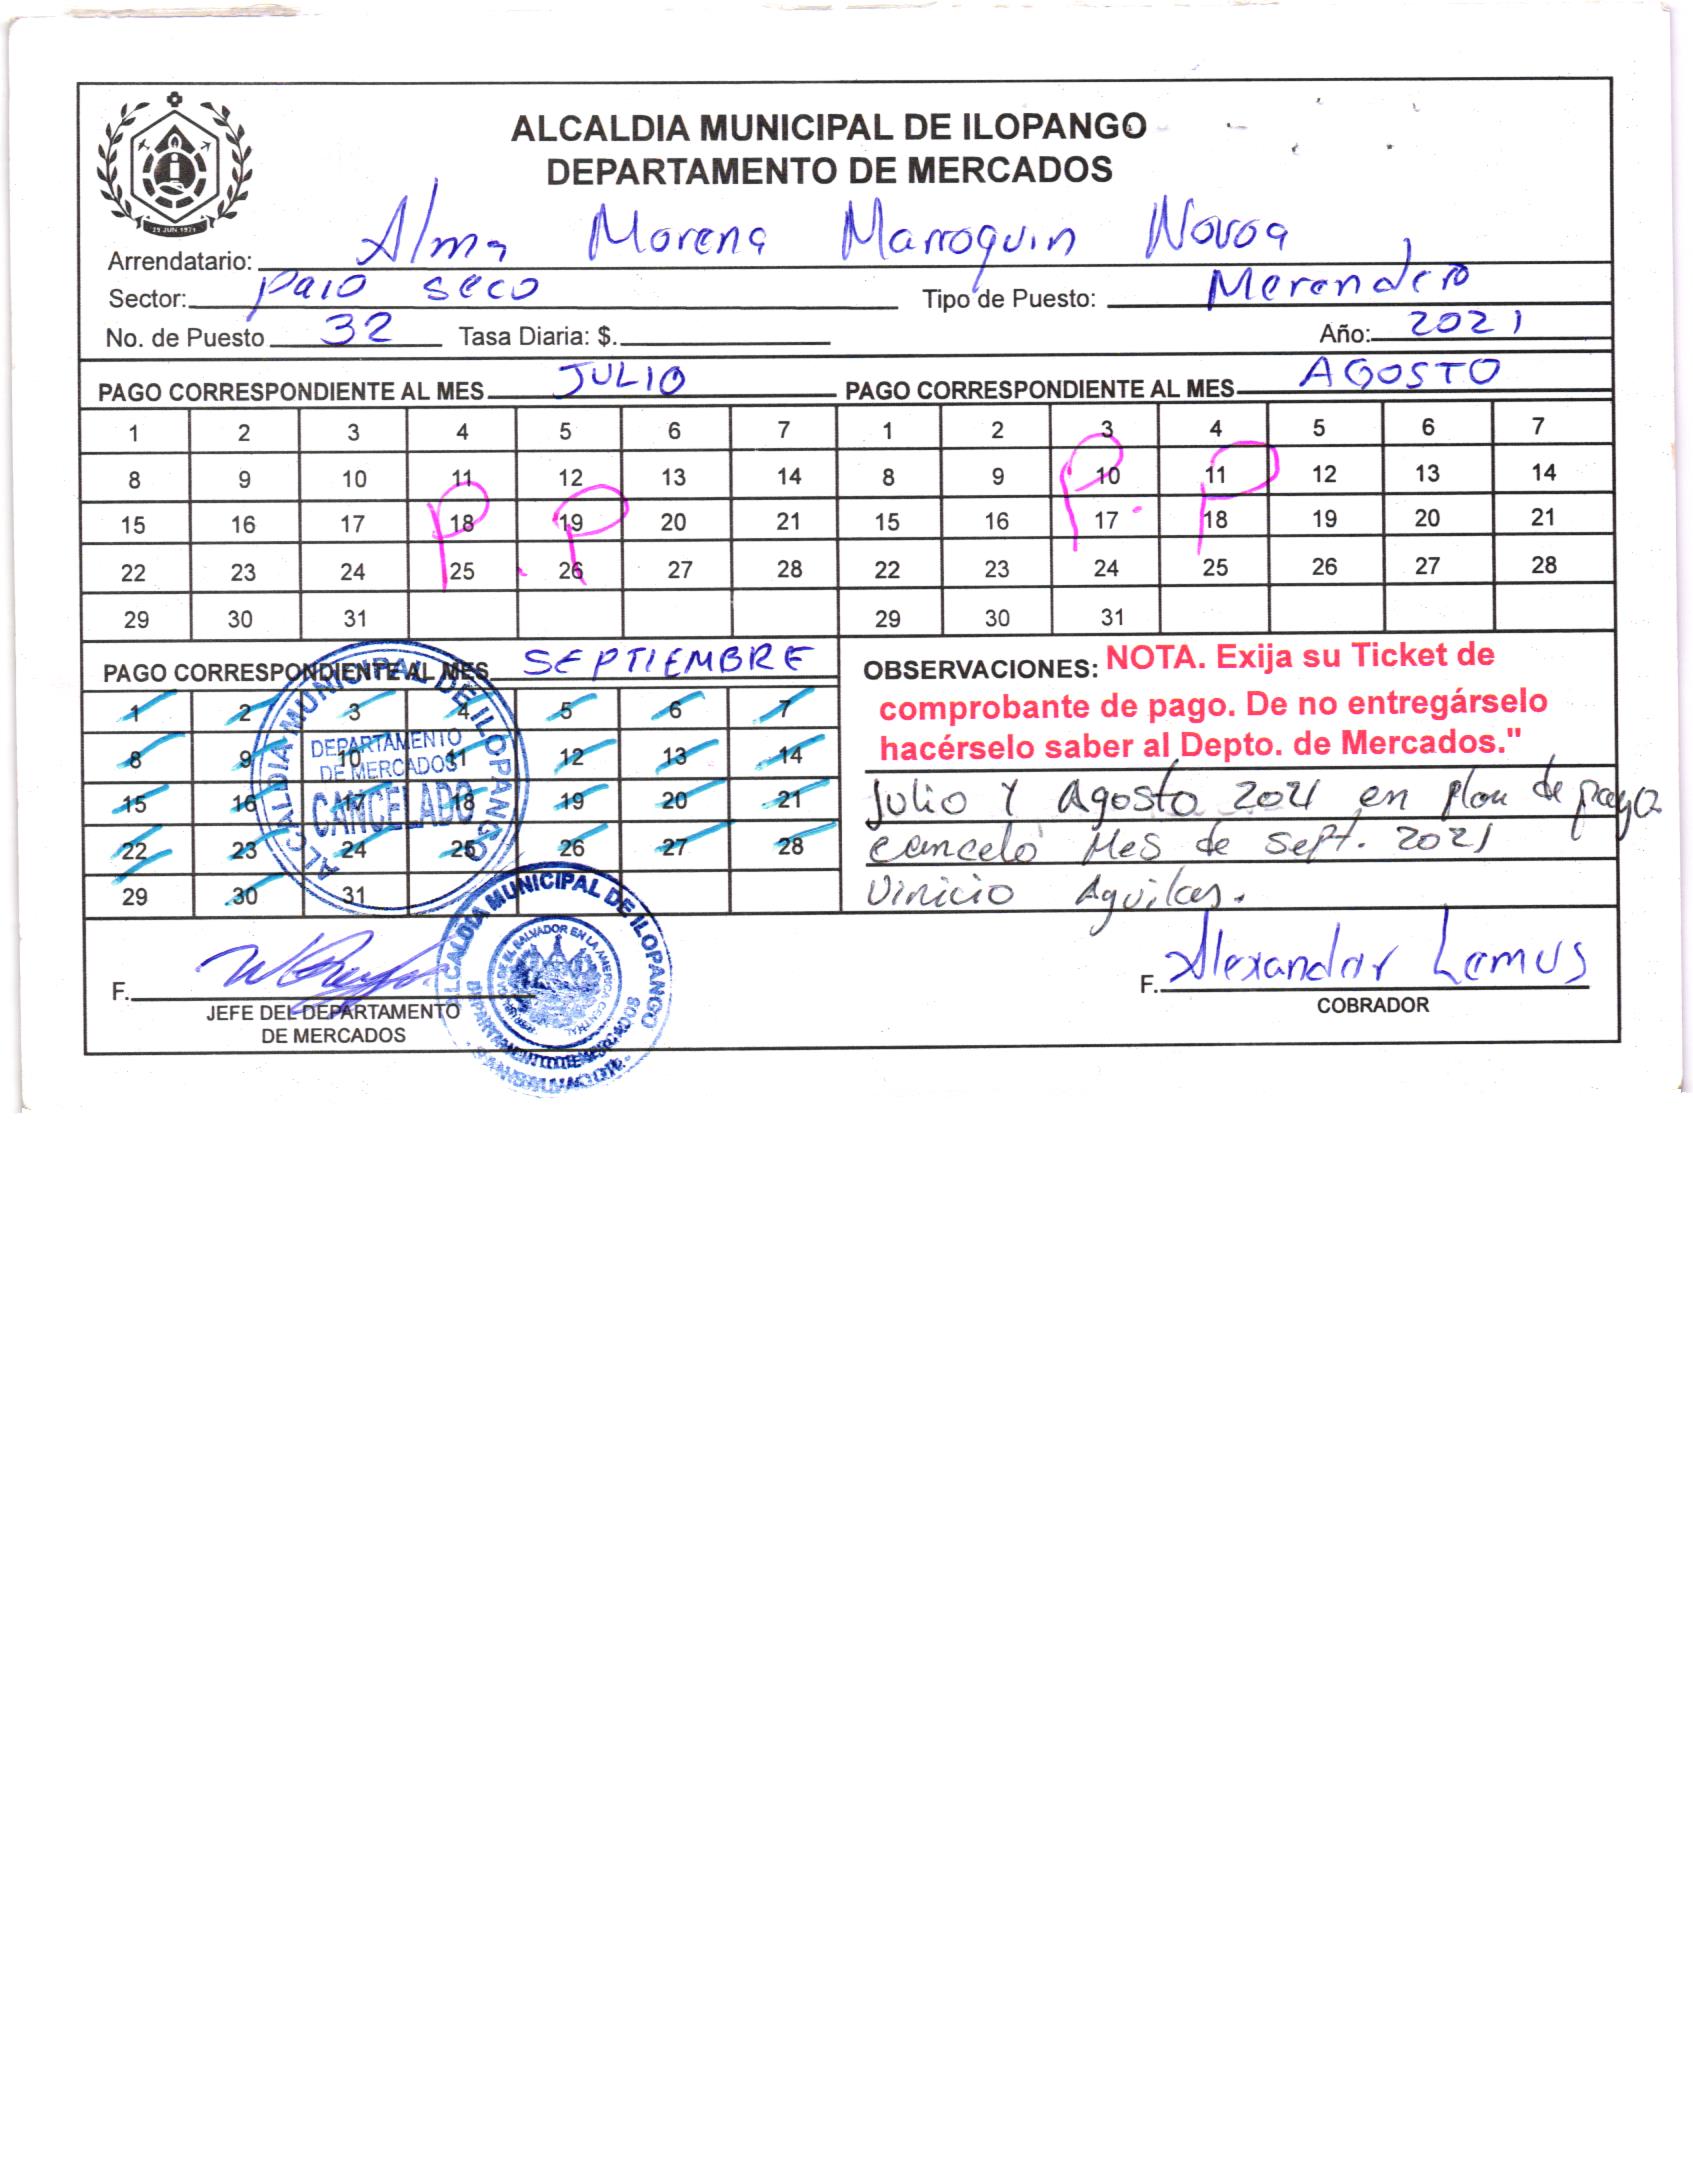 ALCALDIA MUNICIPAL DE ILOPANGO
DEPARTAMENTO DE MERCADOS
25 JUN 1971
Arrendatario: Alma Morena Marroquin Novoa
Sector: paso seco Tipo de Puesto: Merendero
No. de Puesto 32 Tasa Diaria: $. Año: 2021
PAGO CORRESPONDIENTE AL MES JULIO PAGO CORRESPONDIENTE AL MES AGOSTO
1 2 3 4 5 6 7 1 2 3 4 5 6 7
8 9 10 11 12 13 14 8 9 10 11 12 13 14
P.P P.P
15 16 17 18 19 20 21 15 16 17 18 19 20 21
22 23 24 25 26 27 28 22 23 24 25 26 27 28
29 30 31 29 30 31
PAGO CORRESPONDIENTE AL MES SEPTIEMBRE
1 2 3 4 5 6 7
8 9 10 11 12 13 14
15 16 17 18 19 20 21
22 23 24 25 26 27 28
29 30 31
ALCALDIA MUNICIPAL DE ILOPANGO
DEPARTAMENTO
DE MERCADOS
CANCELADO
OBSERVACIONES: NOTA. Exija su Ticket de
comprobante de pago. De no entregárselo
hacérselo saber al Depto. de Mercados."
Julio Y Agosto 2021 en plan de pago
canceló Mes de sept. 2021
Vinicio Aguilar.
ALCALDIA MUNICIPAL DE ILOPANGO
DE EL SALVADOR EN LA AMERICA CENTRAL
DEPARTAMENTO DE MERCADOS
F.
JEFE DEL DEPARTAMENTO
DE MERCADOS
F. Alexander Lemus
COBRADOR